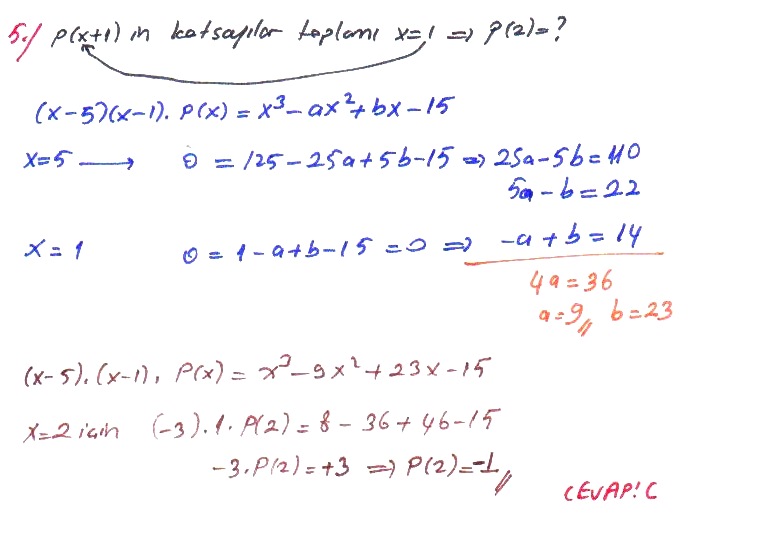 5-/ P(x+1) in katsayılar toplamı x=1 ⇒ P(2)=?
(x-5)(x-1). P(x) = x³-ax²+bx-15
x=5 → 0 = 125-25a+5b-15 ⇒ 25a-5b=110
5a-b=22
x=1 0 = 1-a+b-15=0 ⇒ -a+b=14
4a=36
a=9,, b=23
(x-5).(x-1), P(x) = x³-9x²+23x-15
x=2 için (-3).1.P(2)=8-36+46-15
-3.P(2)=+3 ⇒ P(2)=-1,,
CEVAP: C